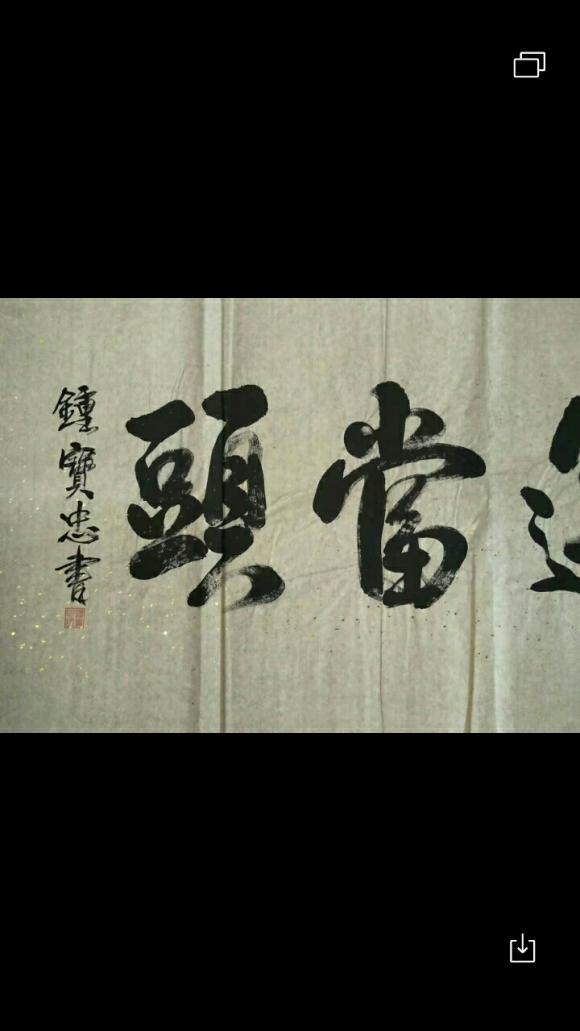 當頭
鍾寶忠書